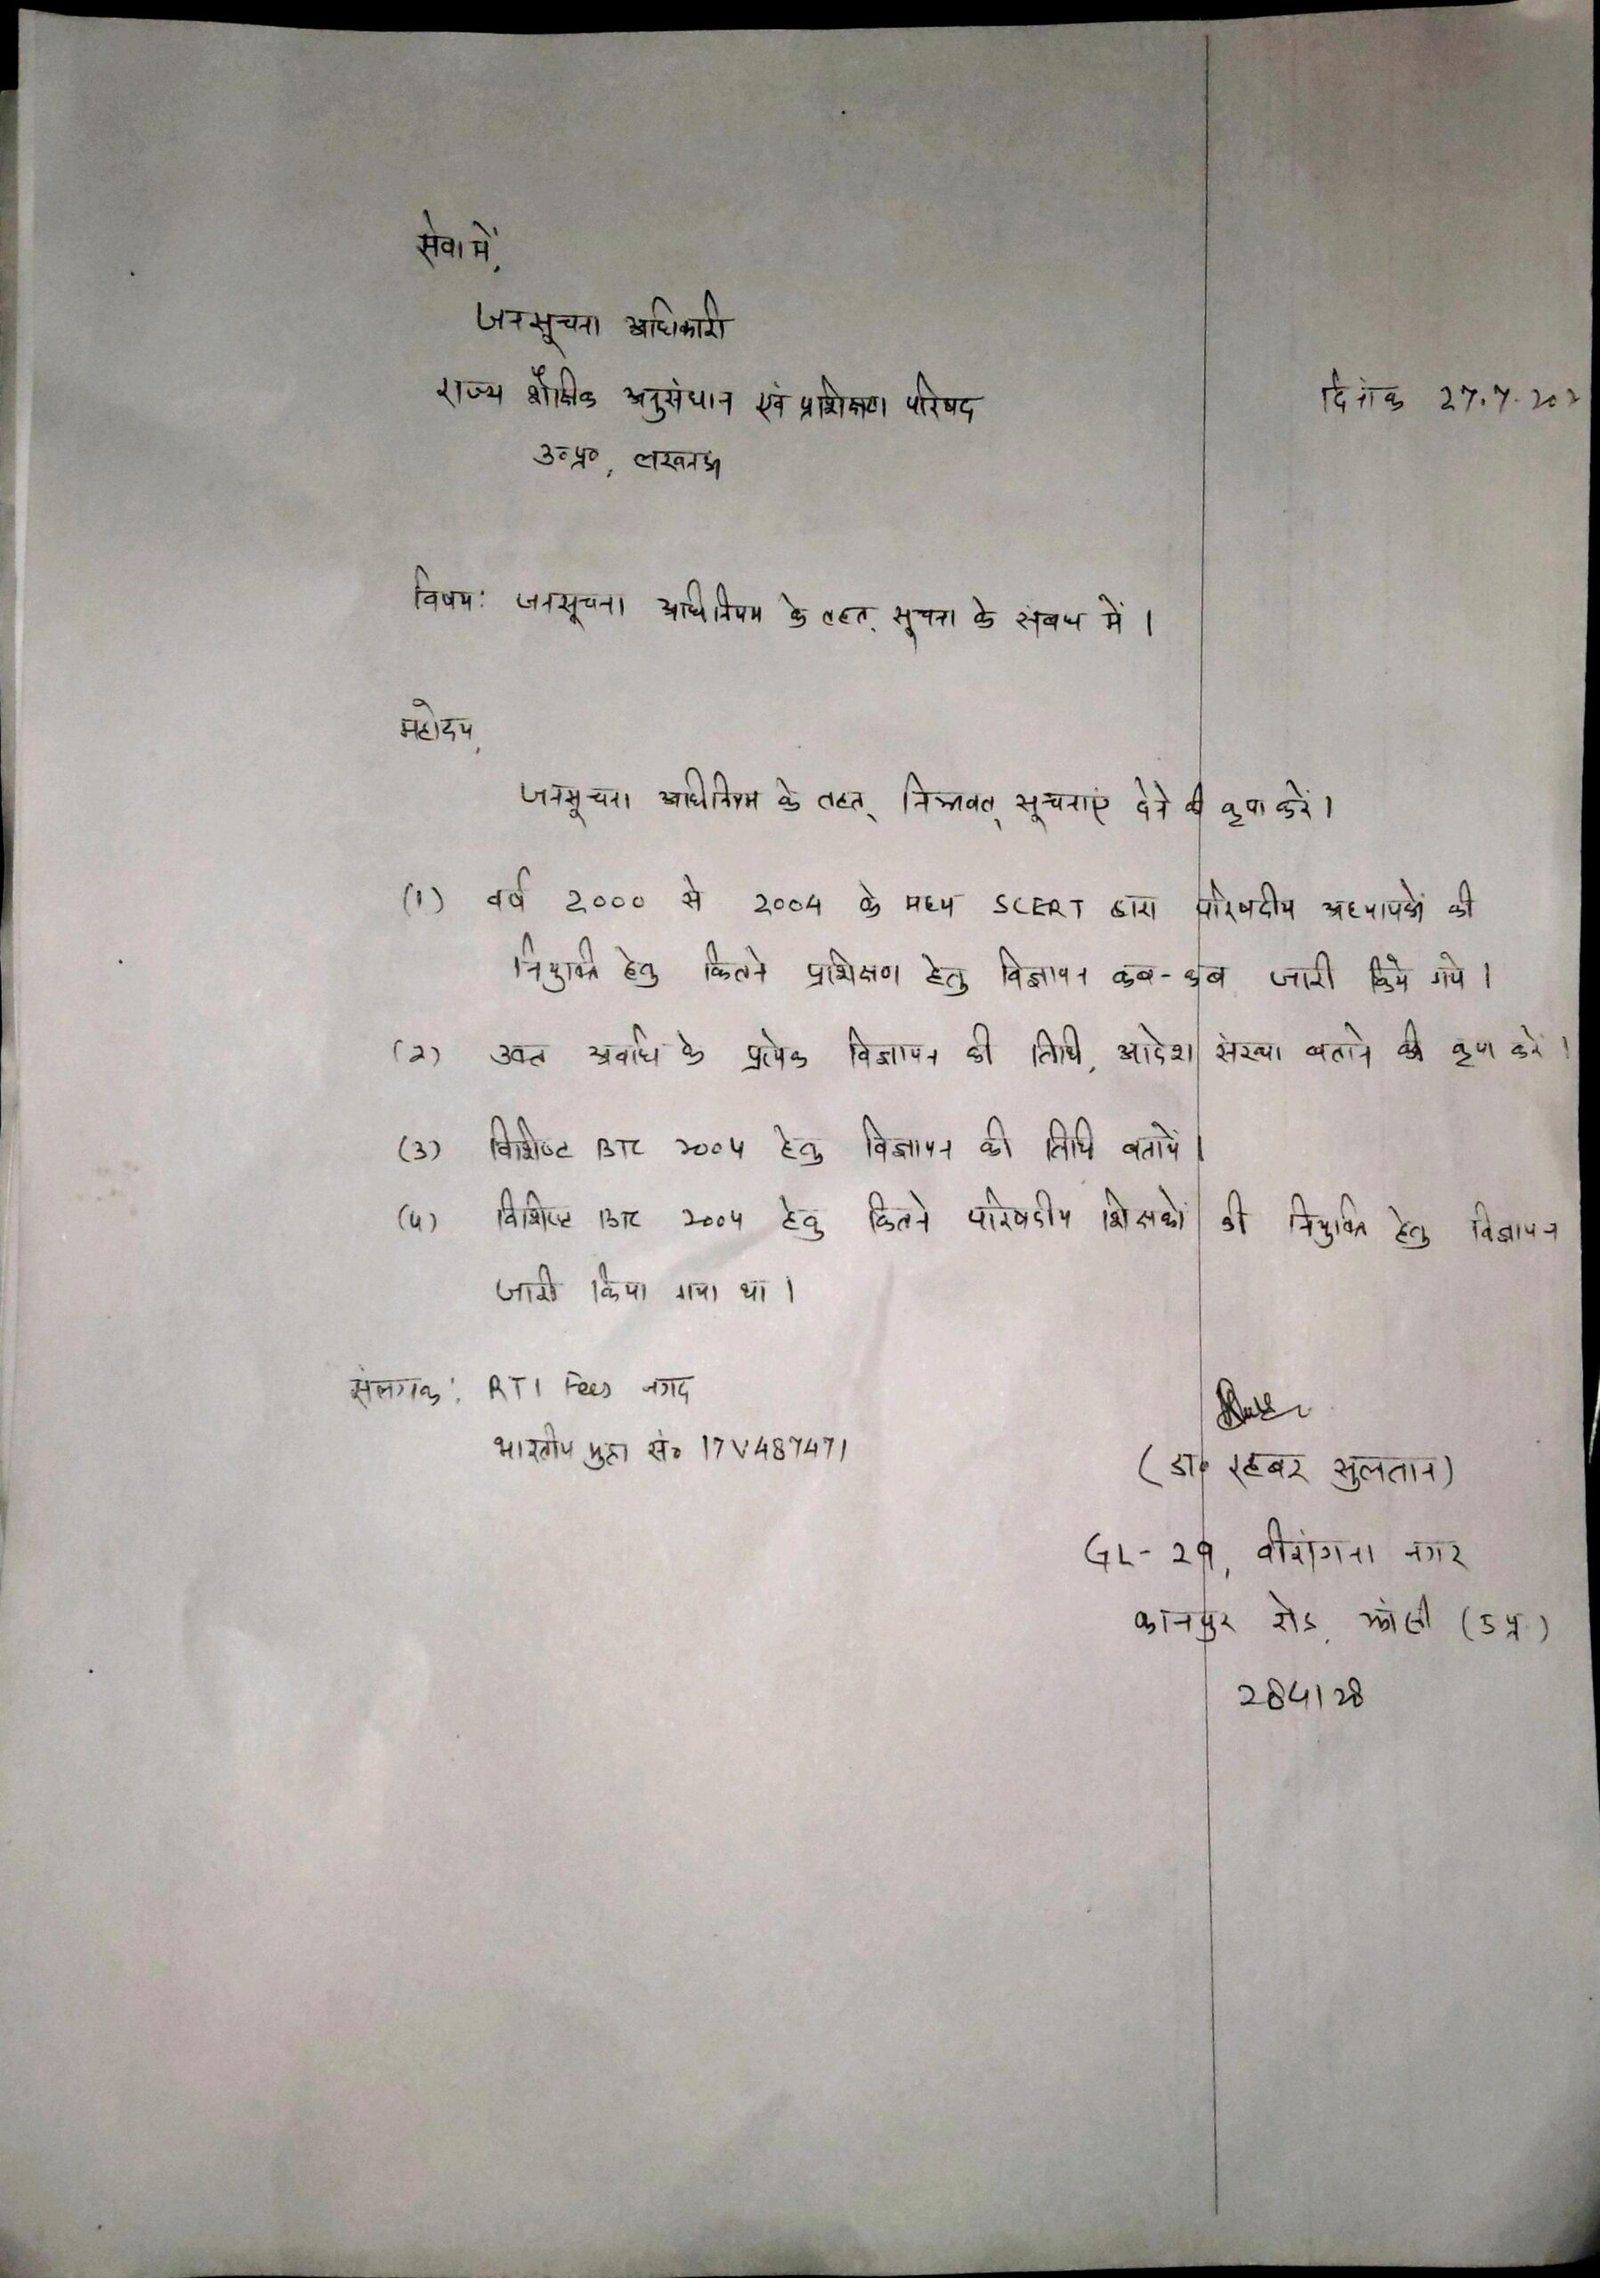 सेवा में,
जनसूचना अधिकारी
राज्य शैक्षिक अनुसंधान एवं प्रशिक्षण परिषद
दिनांक 27.7.202
उ०प्र०, लखनऊ
विषय: जनसूचना अधिनियम के तहत् सूचना के संबध में ।
महोदय,
जनसूचना अधिनियम के तहत् निम्नवत् सूचनाएं देने की कृपा करें ।
(1) वर्ष 2000 से 2004 के मध्य SCERT द्वारा परिषदीय अध्यापकों की
नियुक्ति हेतु कितने प्रशिक्षण हेतु विज्ञापन कब-कब जारी किये गये ।
(2) उक्त अवधि के प्रत्येक विज्ञापन की तिथि, आदेश संख्या बताने की कृपा करें ।
(3) विशिष्ट BTC 2004 हेतु विज्ञापन की तिथि बतायें ।
(4) विशिष्ट BTC 2004 हेतु कितने परिषदीय शिक्षकों की नियुक्ति हेतु विज्ञापन
जारी किया गया था ।
संलग्नक: RTI Fees नगद
भारतीय मुद्रा सं० 17V487471
(डा० रहबर सुलतान)
GL-29, वीरांगना नगर
कानपुर रोड, झांसी (उ प्र)
284128